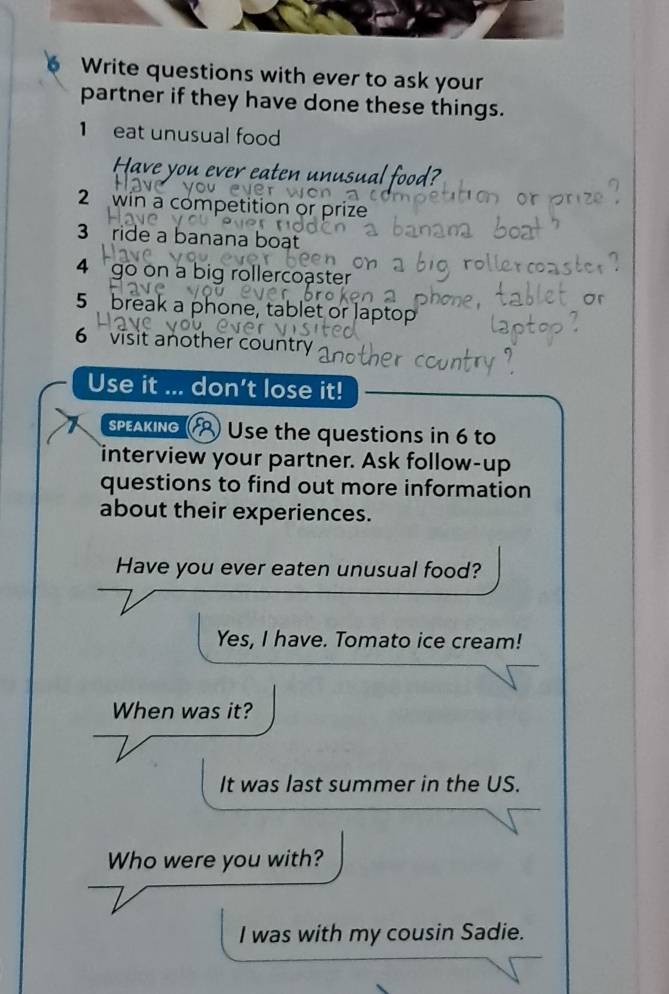 6 Write questions with ever to ask your
partner if they have done these things.
1 eat unusual food
Have you ever eaten unusual food?
Have you ever won a competition or prize?
2 win a competition or prize
Have you ever ridden a banana boat?
3 ride a banana boat
Have you ever been on a big rollercoaster?
4 go on a big rollercoaster
Have you ever broken a phone, tablet or
5 break a phone, tablet or laptop
laptop?
Have you ever visited
6 visit another country
another country?
Use it ... don't lose it!
7 SPEAKING Use the questions in 6 to
interview your partner. Ask follow-up
questions to find out more information
about their experiences.
Have you ever eaten unusual food?
Yes, I have. Tomato ice cream!
When was it?
It was last summer in the US.
Who were you with?
I was with my cousin Sadie.